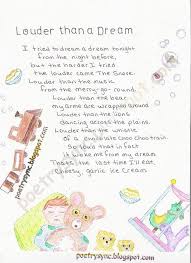 Louder than a Dream
I tried to dream a dream tonight
from the night before,
but the harder I tried
the louder came The Snore.
Louder than the music
from the merry-go-round.
Louder than the bear
my arms are wrapped around
Louder than the lions
dancing across the plains.
Louder than the whistle
of a choo choo train.
So loud in fact
it woke me from my dream
Thats the last time I'll eat,
Cheesy, garlic Ice Cream
poetrysync.blogspot.com